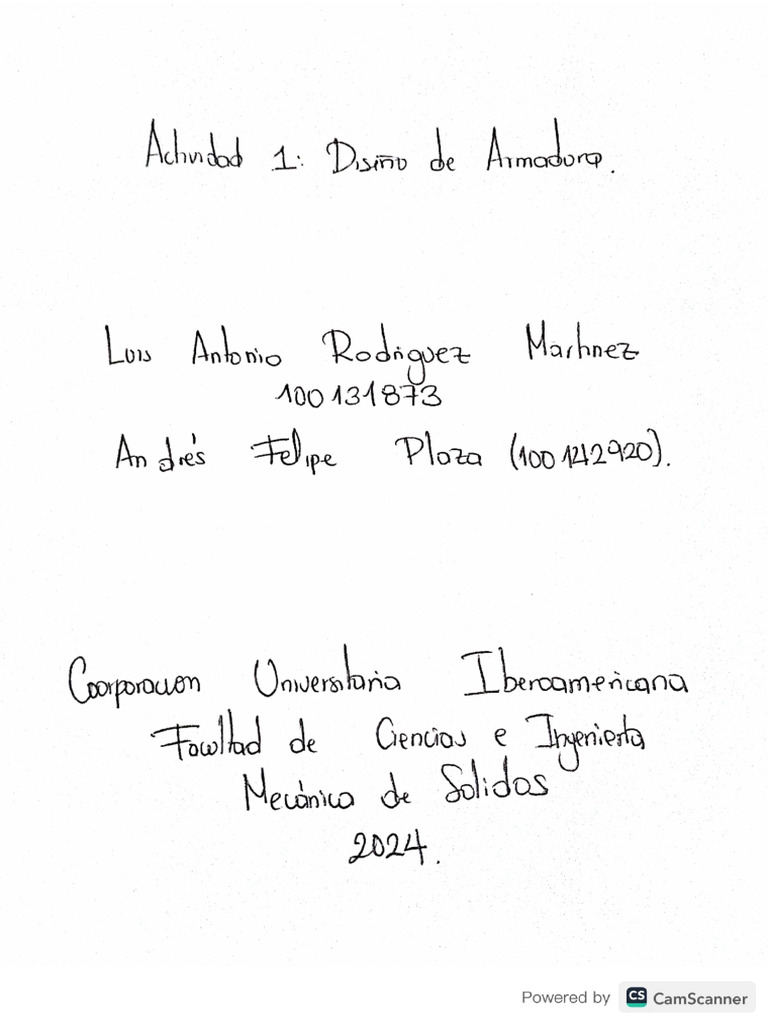 Actividad 1: Diseño de Armadura.
Luis Antonio Rodriguez Martinez
100131873
Andrés Felipe Plaza (100142920).
Coorporacion Universitaria Iberoamericana
Facultad de Ciencias e Ingenieria
Mecánica de Solidos
2024.
Powered by CS CamScanner